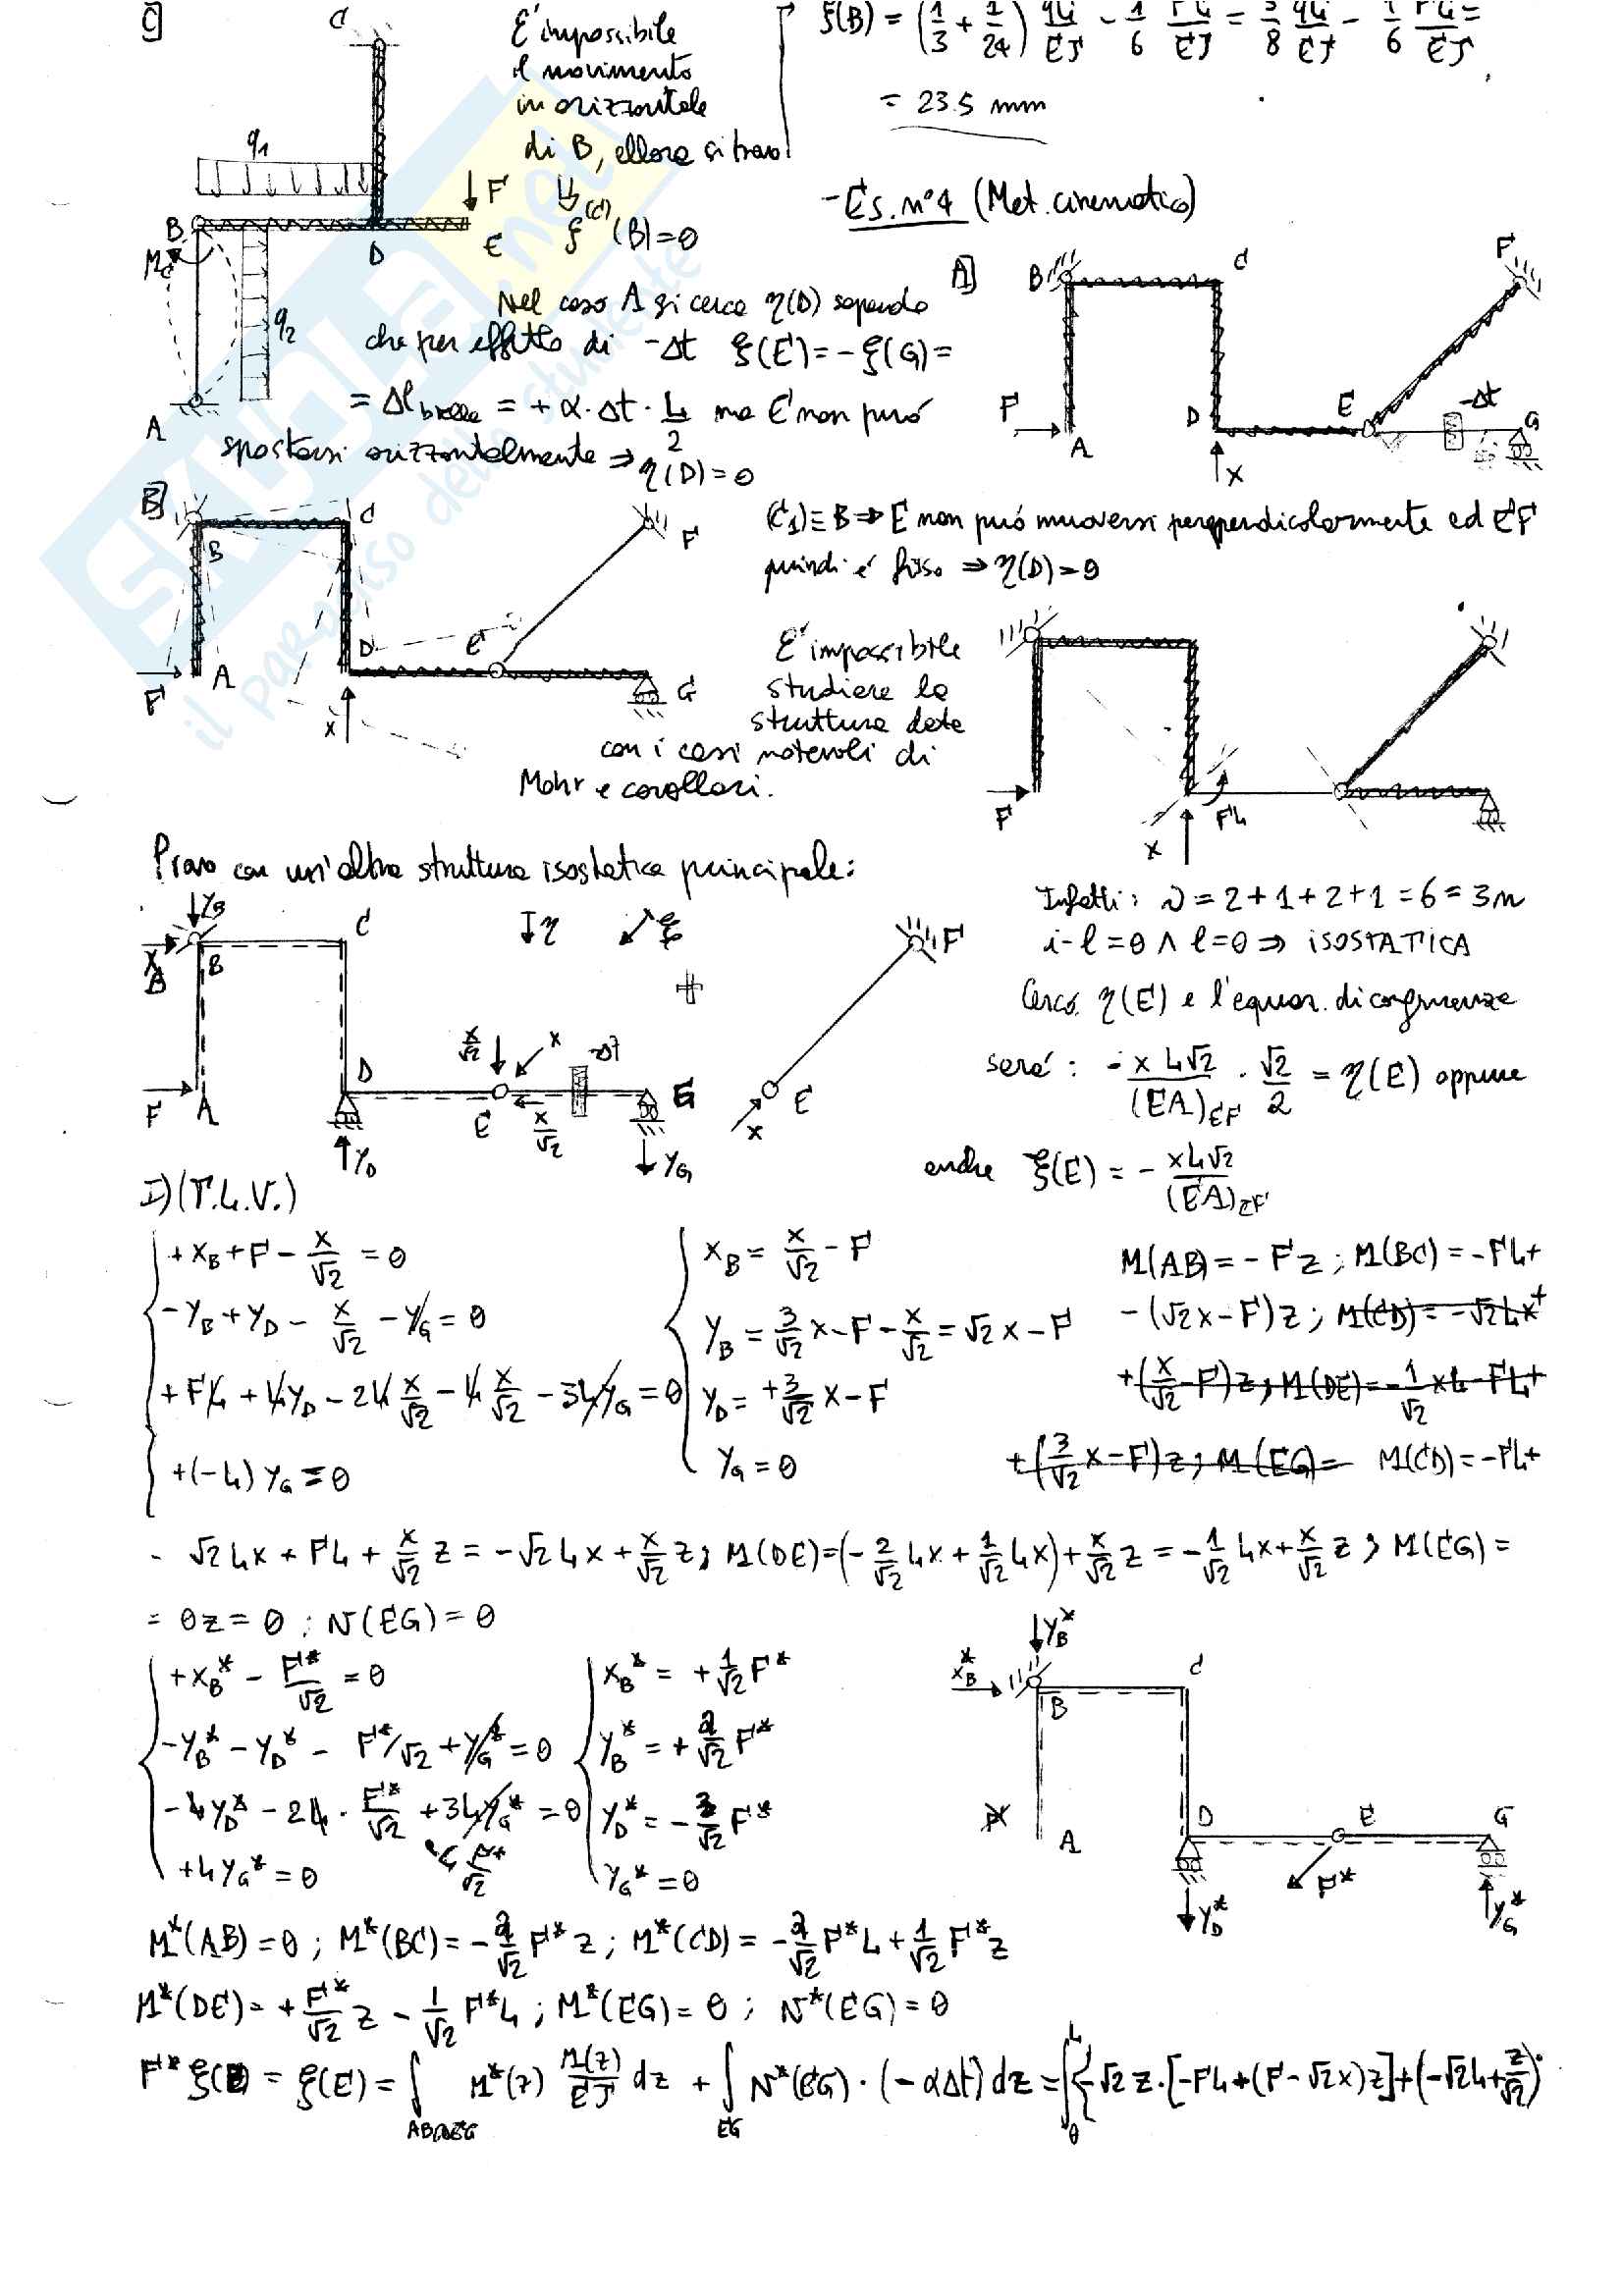 C]
C
E' impossibile
il movimento
in orizzontale
di B, allora si trova
ξ(B) = (1/3 + 1/24) qL/EJ - 1/6 FL/EJ = 3/8 qL/EJ - 1/6 FL/EJ =
= 23.5 mm
q1
F
B
D
E
ξ^(C)(B)=0
q2
A
Nel caso A si cerca η(D) sapendo
che per effetto di -Δt ξ(E)=-ξ(G)=
= Δl biella = + α·Δt·L/2 ma E non può
spostarsi orizzontalmente ⇒ η(D)=0
- Es. n°4 (Met. cinematico)
A]
B
C
F
F
A
D
E
-Δt
G
X
B]
B
C
F
F
A
D
E
G
X
(C1)≡B ⇒ E non può muoversi perpendicolarmente ad EF
quindi è fisso ⇒ η(D)=0
E' impossibile
studiare la
struttura data
con i casi notevoli di
Mohr e corollari.
F
X
FL
Provo con un'altra struttura isostatica principale:
YB
XB
B
C
η
ξ
F
F
A
D
X/√2
X
-Δt
E
X/√2
G
YD
YG
X
E
Infatti: ν = 2+1+2+1 = 6 = 3n
i-l=0 ∧ l=0 ⇒ ISOSTATICA
Cerco η(E) e l'equaz. di congruenza
sarà: - XL√2/(EA)EF · √2/2 = η(E) oppure
anche ξ(E) = - XL√2/(EA)EF
I)(T.L.V.)
+XB+F- X/√2 = 0
-YB+YD- X/√2 -YG = 0
+FL+LYD-2L X/√2 -L X/√2 -3LYG = 0
+(-L)YG = 0
XB = X/√2 -F
YB = 3/√2 X-F- X/√2 = √2X-F
YD = +3/√2 X-F
YG = 0
M(AB)=-Fz; M(BC)=-FL+
-(√2X-F)z; M(CD)=-√2LX+
+(X/√2 -F)z; M(DE)=-1/√2 XL-FL+
+(3/√2 X-F)z; M(EG)= M(CD)=-FL+
- √2LX+FL+ X/√2 z = -√2LX+ X/√2 z; M(DE)=(-2/√2 LX+ 1/√2 LX)+ X/√2 z = -1/√2 LX+ X/√2 z; M(EG)=
= 0z = 0; N(EG)=0
+XB* - F*/√2 = 0
-YB*-YD*- F*/√2+YG* = 0
-LYD*-2L· F*/√2 +3LYG* = 0
-L F*/√2
+LYG* = 0
XB* = +1/√2 F*
YB* = +2/√2 F*
YD* = -3/√2 F*
YG* = 0
YB*
XB*
B
C
A
D
E
G
F*
YD*
YG*
M*(AB)=0; M*(BC)=-2/√2 F*z; M*(CD)=-2/√2 F*L+1/√2 F*z
M*(DE)=+F*/√2 z - 1/√2 F*L; M*(EG)=0; N*(EG)=0
F*ξ(E) = ξ(E) = ∫ M*(z) M(z)/EJ dz + ∫EG N*(EG)·(-αΔt)dz = ∫0^L {-√2z·[-FL+(F-√2X)z]+(-√2L+ z/√2)·